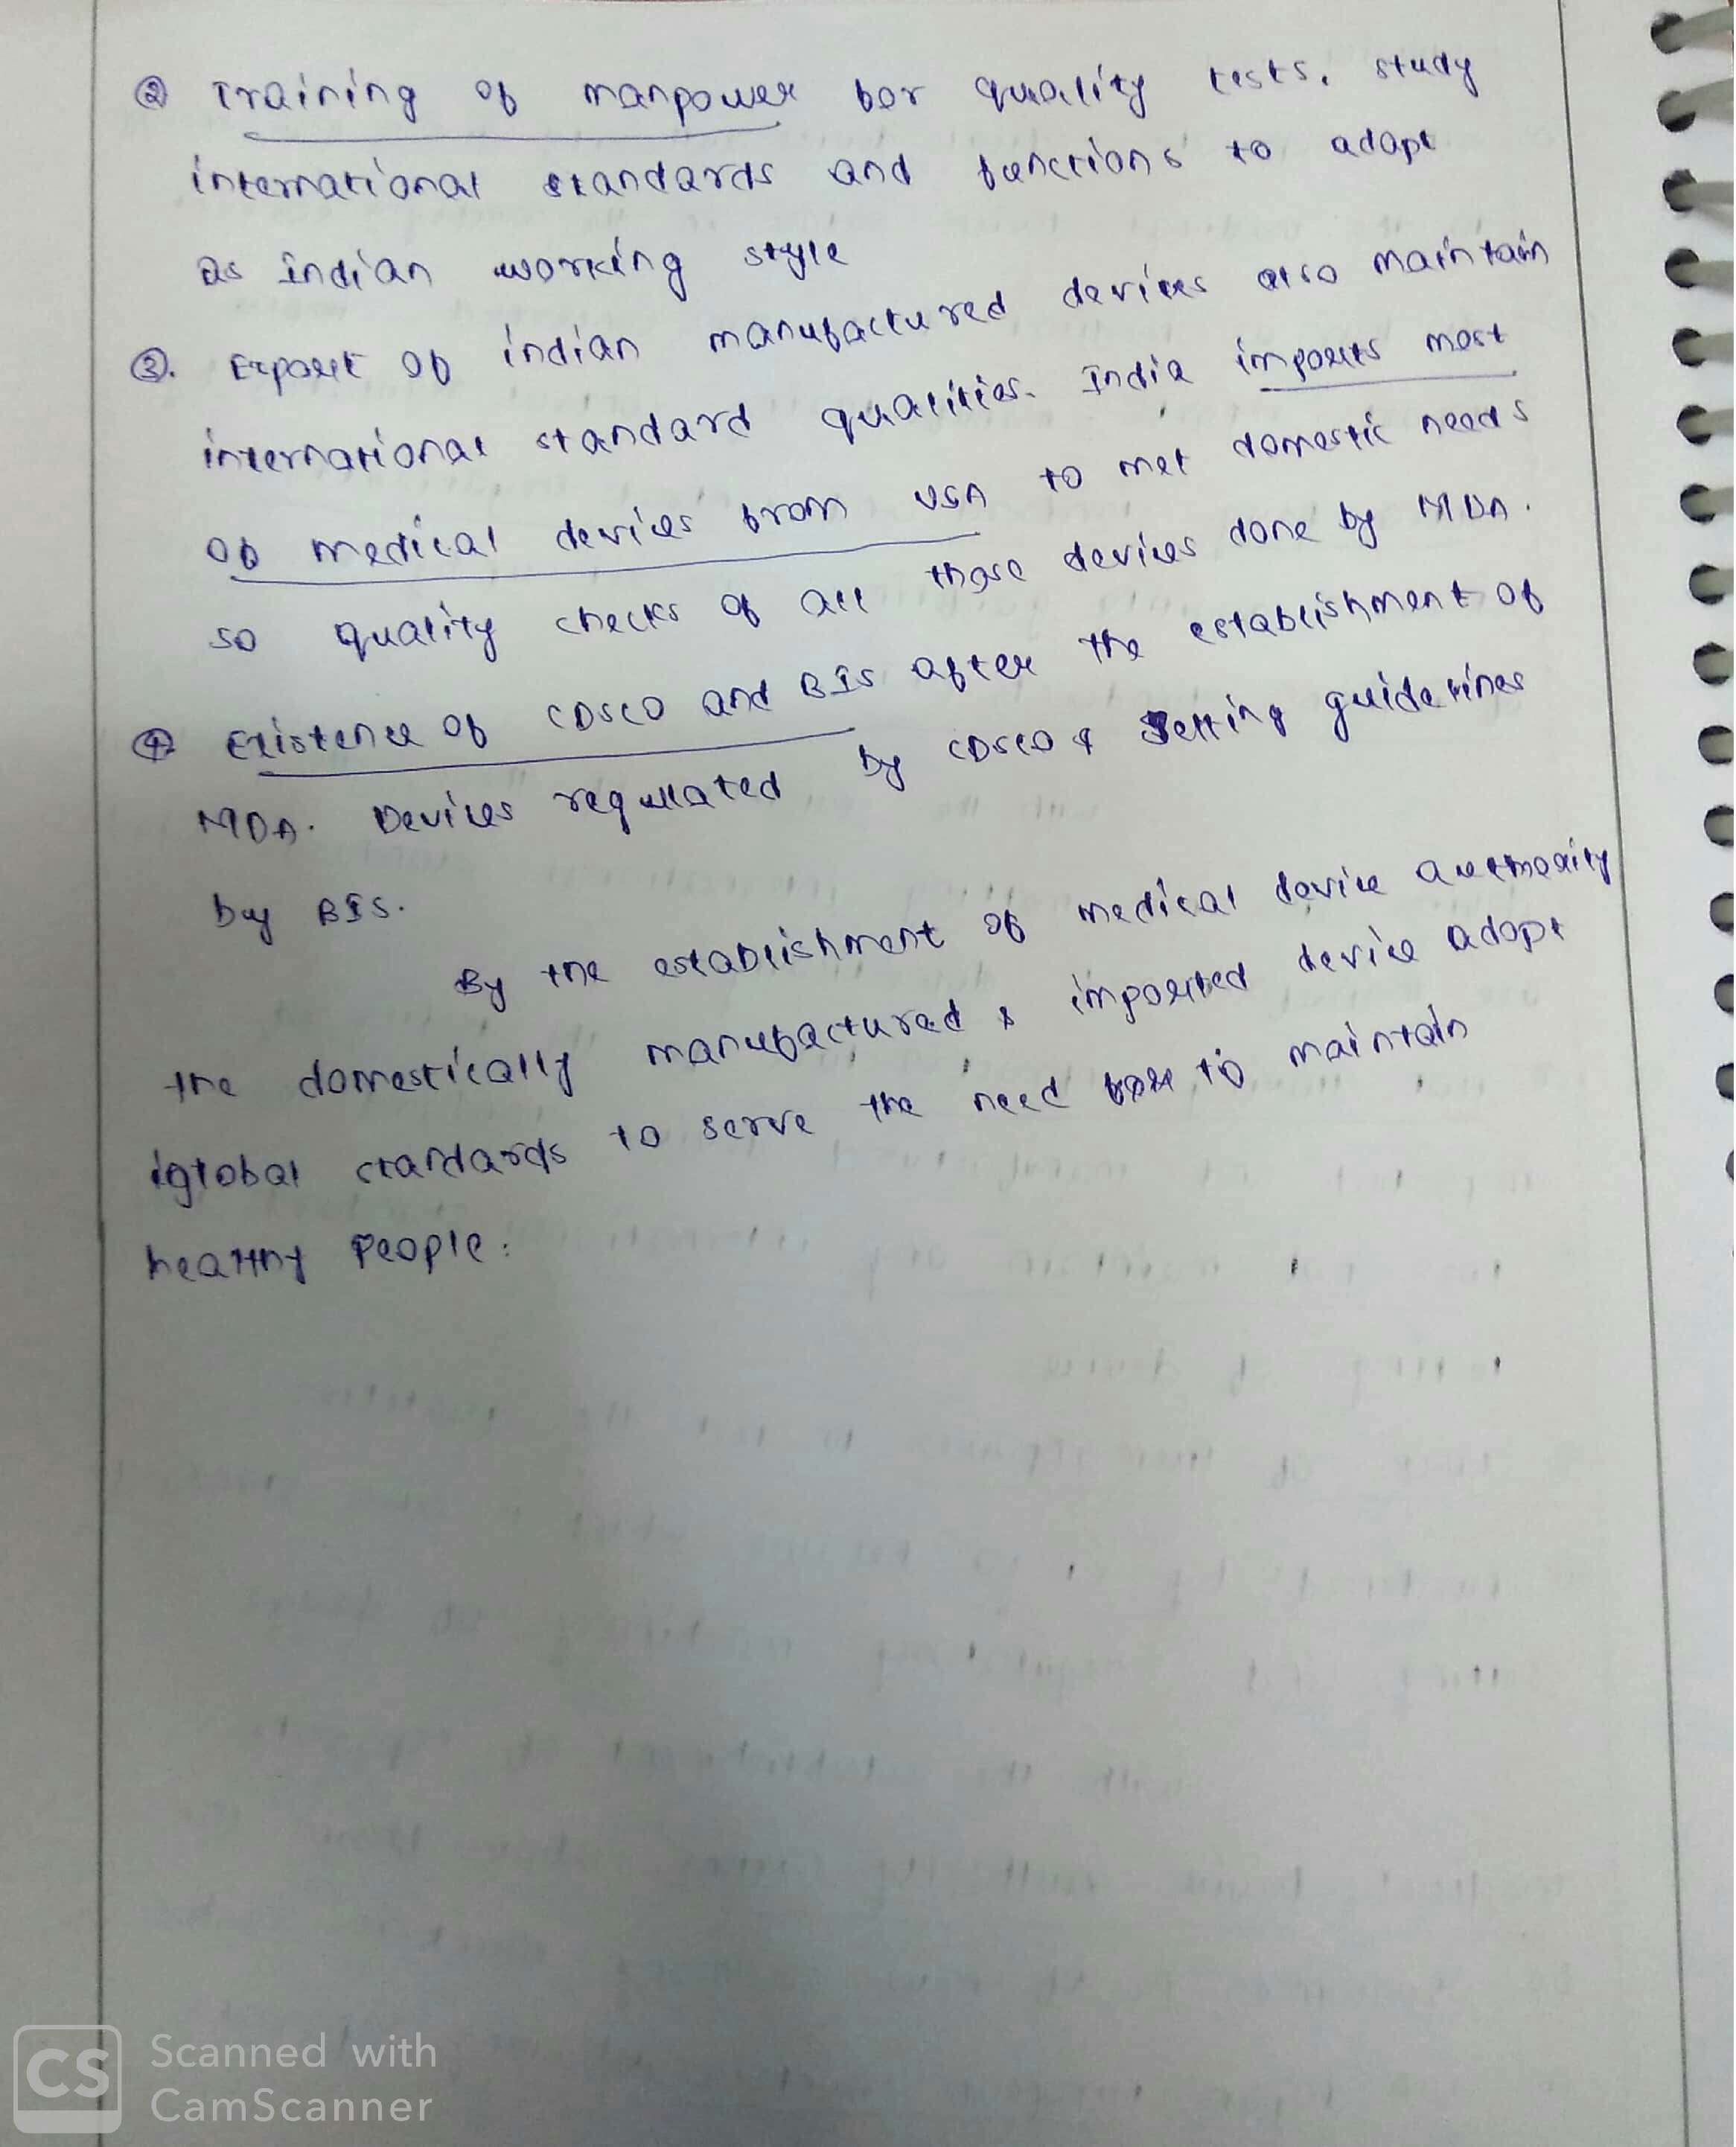 ② Training of manpower for quality tests, study
international standards and functions to adapt
as indian working style
③. Export of indian manufactured devices also maintain
international standard qualities. India imports most
of medical devices from USA to met domestic needs
so quality checks of all those devices done by MDA.
④ Existence of CDSCO and BIS after the establishment of
MDA. Devices regulated by CDSCO & Setting guidelines
by BIS.
By the establishment of medical device authority
the domestically manufactured & imported device adopt
global standards to serve the need to maintain
healthy people.
CS Scanned with
CamScanner